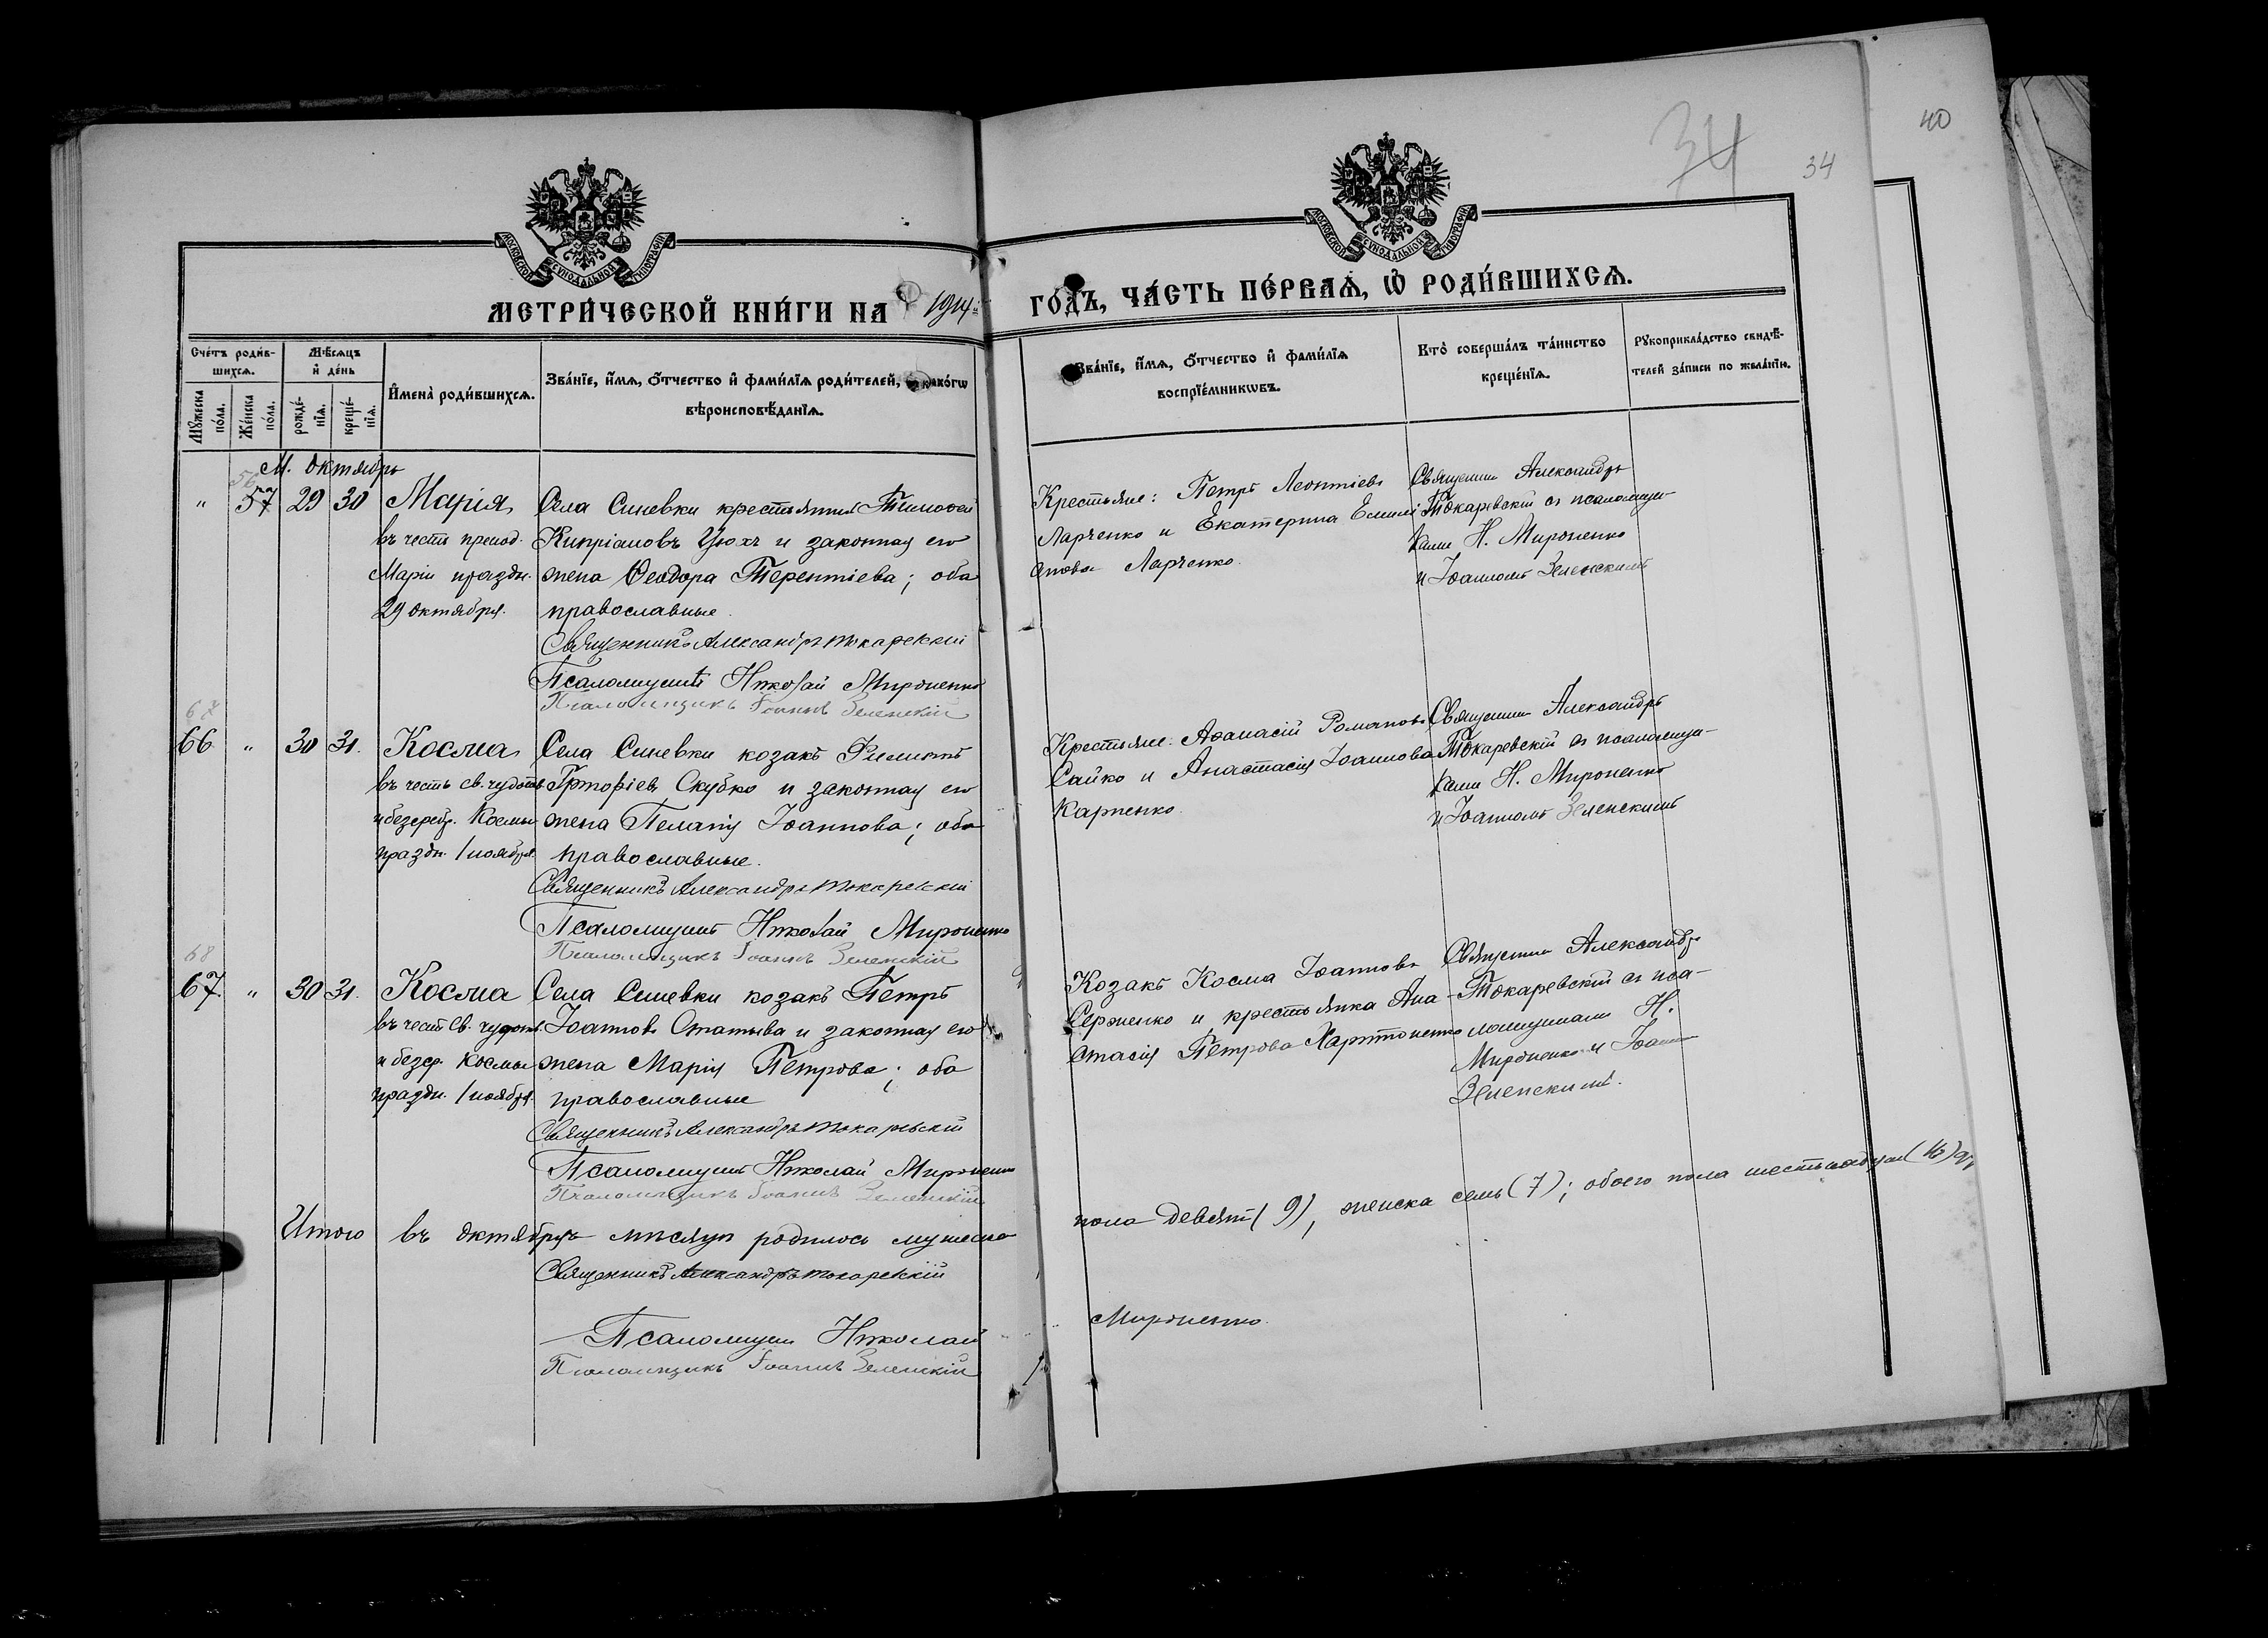 40
34
34
МОСКОВСКОЙ СУНОДАЛЬНОЙ ТИПОГРАФІИ
МОСКОВСКОЙ СУНОДАЛЬНОЙ ТИПОГРАФІИ
МЕТРИ́ЧЕСКОЙ КНИ́ГИ НА 1914й
ГО́ДЪ, ЧА́СТЬ ПЕ́РВАѦ, Ѡ РОДИ́ВШИХСѦ.
Сче́тъ роди́в-
шихсѧ.
Мꙋжеска по́ла.
Же́нска по́ла.
Мѣ́сѧцъ и де́нь
рожде́-
нїѧ.
креще́-
нїѧ.
Имена̀ роди́вшихсѧ.
Зва́нїе, и́мѧ, ѻ́тчество и фами́лїѧ роди́телей, и како́гѡ
вѣроисповѣ́данїѧ.
Зва́нїе, и́мѧ, ѻ́тчество и фами́лїѧ
воспрїе́мникѡвъ.
Кто̀ соверша́лъ та́инство
креще́нїѧ.
Рꙋкоприкла́дство свидѣ́-
телей за́писи по жела́нїю.
М. Октябрь
56
" 57 29 30 Марія
въ честь препод.
Маріи праздн.
29 октября.
Села Синевки крестьянинъ Тимофей
Кипріановъ Цюхъ и законная его
жена Ѳеодора Терентіева; оба
православные.
Священникъ Александръ Токаревскій
Псаломщикъ Николай Мироненко
Псаломщикъ Іоаннъ Зеленскій
Крестьяне: Петръ Леонтіевъ
Ларченко и Екатерина Емилі-
анова Ларченко.
Священникъ Александръ
Токаревскій съ псаломщи-
ками Н. Мироненко
и Іоанномъ Зеленскимъ
67
66 " 30 31. Косма
въ честь св. чудотв.
и безсребр. Космы
праздн. 1 ноября.
Села Синевки козакъ Филиппъ
Григоріевъ Скубко и законная его
жена Пелагія Іоаннова; оба
православные.
Священникъ Александръ Токаревскій
Псаломщикъ Николай Мироненко
Псаломщикъ Іоаннъ Зеленскій
Крестьяне: Аѳанасій Романовъ
Сайко и Анастасія Іоаннова
Карпенко.
Священникъ Александръ
Токаревскій съ псаломщи-
ками Н. Мироненко
и Іоанномъ Зеленскимъ
68
67. " 30 31. Косма
въ честь св. чудотв.
и безср. Космы
праздн. 1 ноября.
Села Синевки козакъ Петръ
Іоанновъ и законная его
жена Марія Петрова; оба
православные
Священникъ Александръ Токаревскій
Псаломщикъ Николай Мироненко
Псаломщикъ Іоаннъ Зеленскій
Козакъ Косма Іоанновъ
Сероженко и крестьянка Ана-
стасія Петрова Харитоненко
Священникъ Александръ
Токаревскій съ пса-
ломщиками Н.
Мироненко и Іоанн
Зеленскимъ.
Итого въ октябрѣ мѣсяцѣ родилось мужеска
пола девять (9), женска семь (7); обоего пола шестнадцать (16)
Священникъ Александръ Токаревскій
Псаломщикъ Николай
Мироненко.
Псаломщикъ Іоаннъ Зеленскій